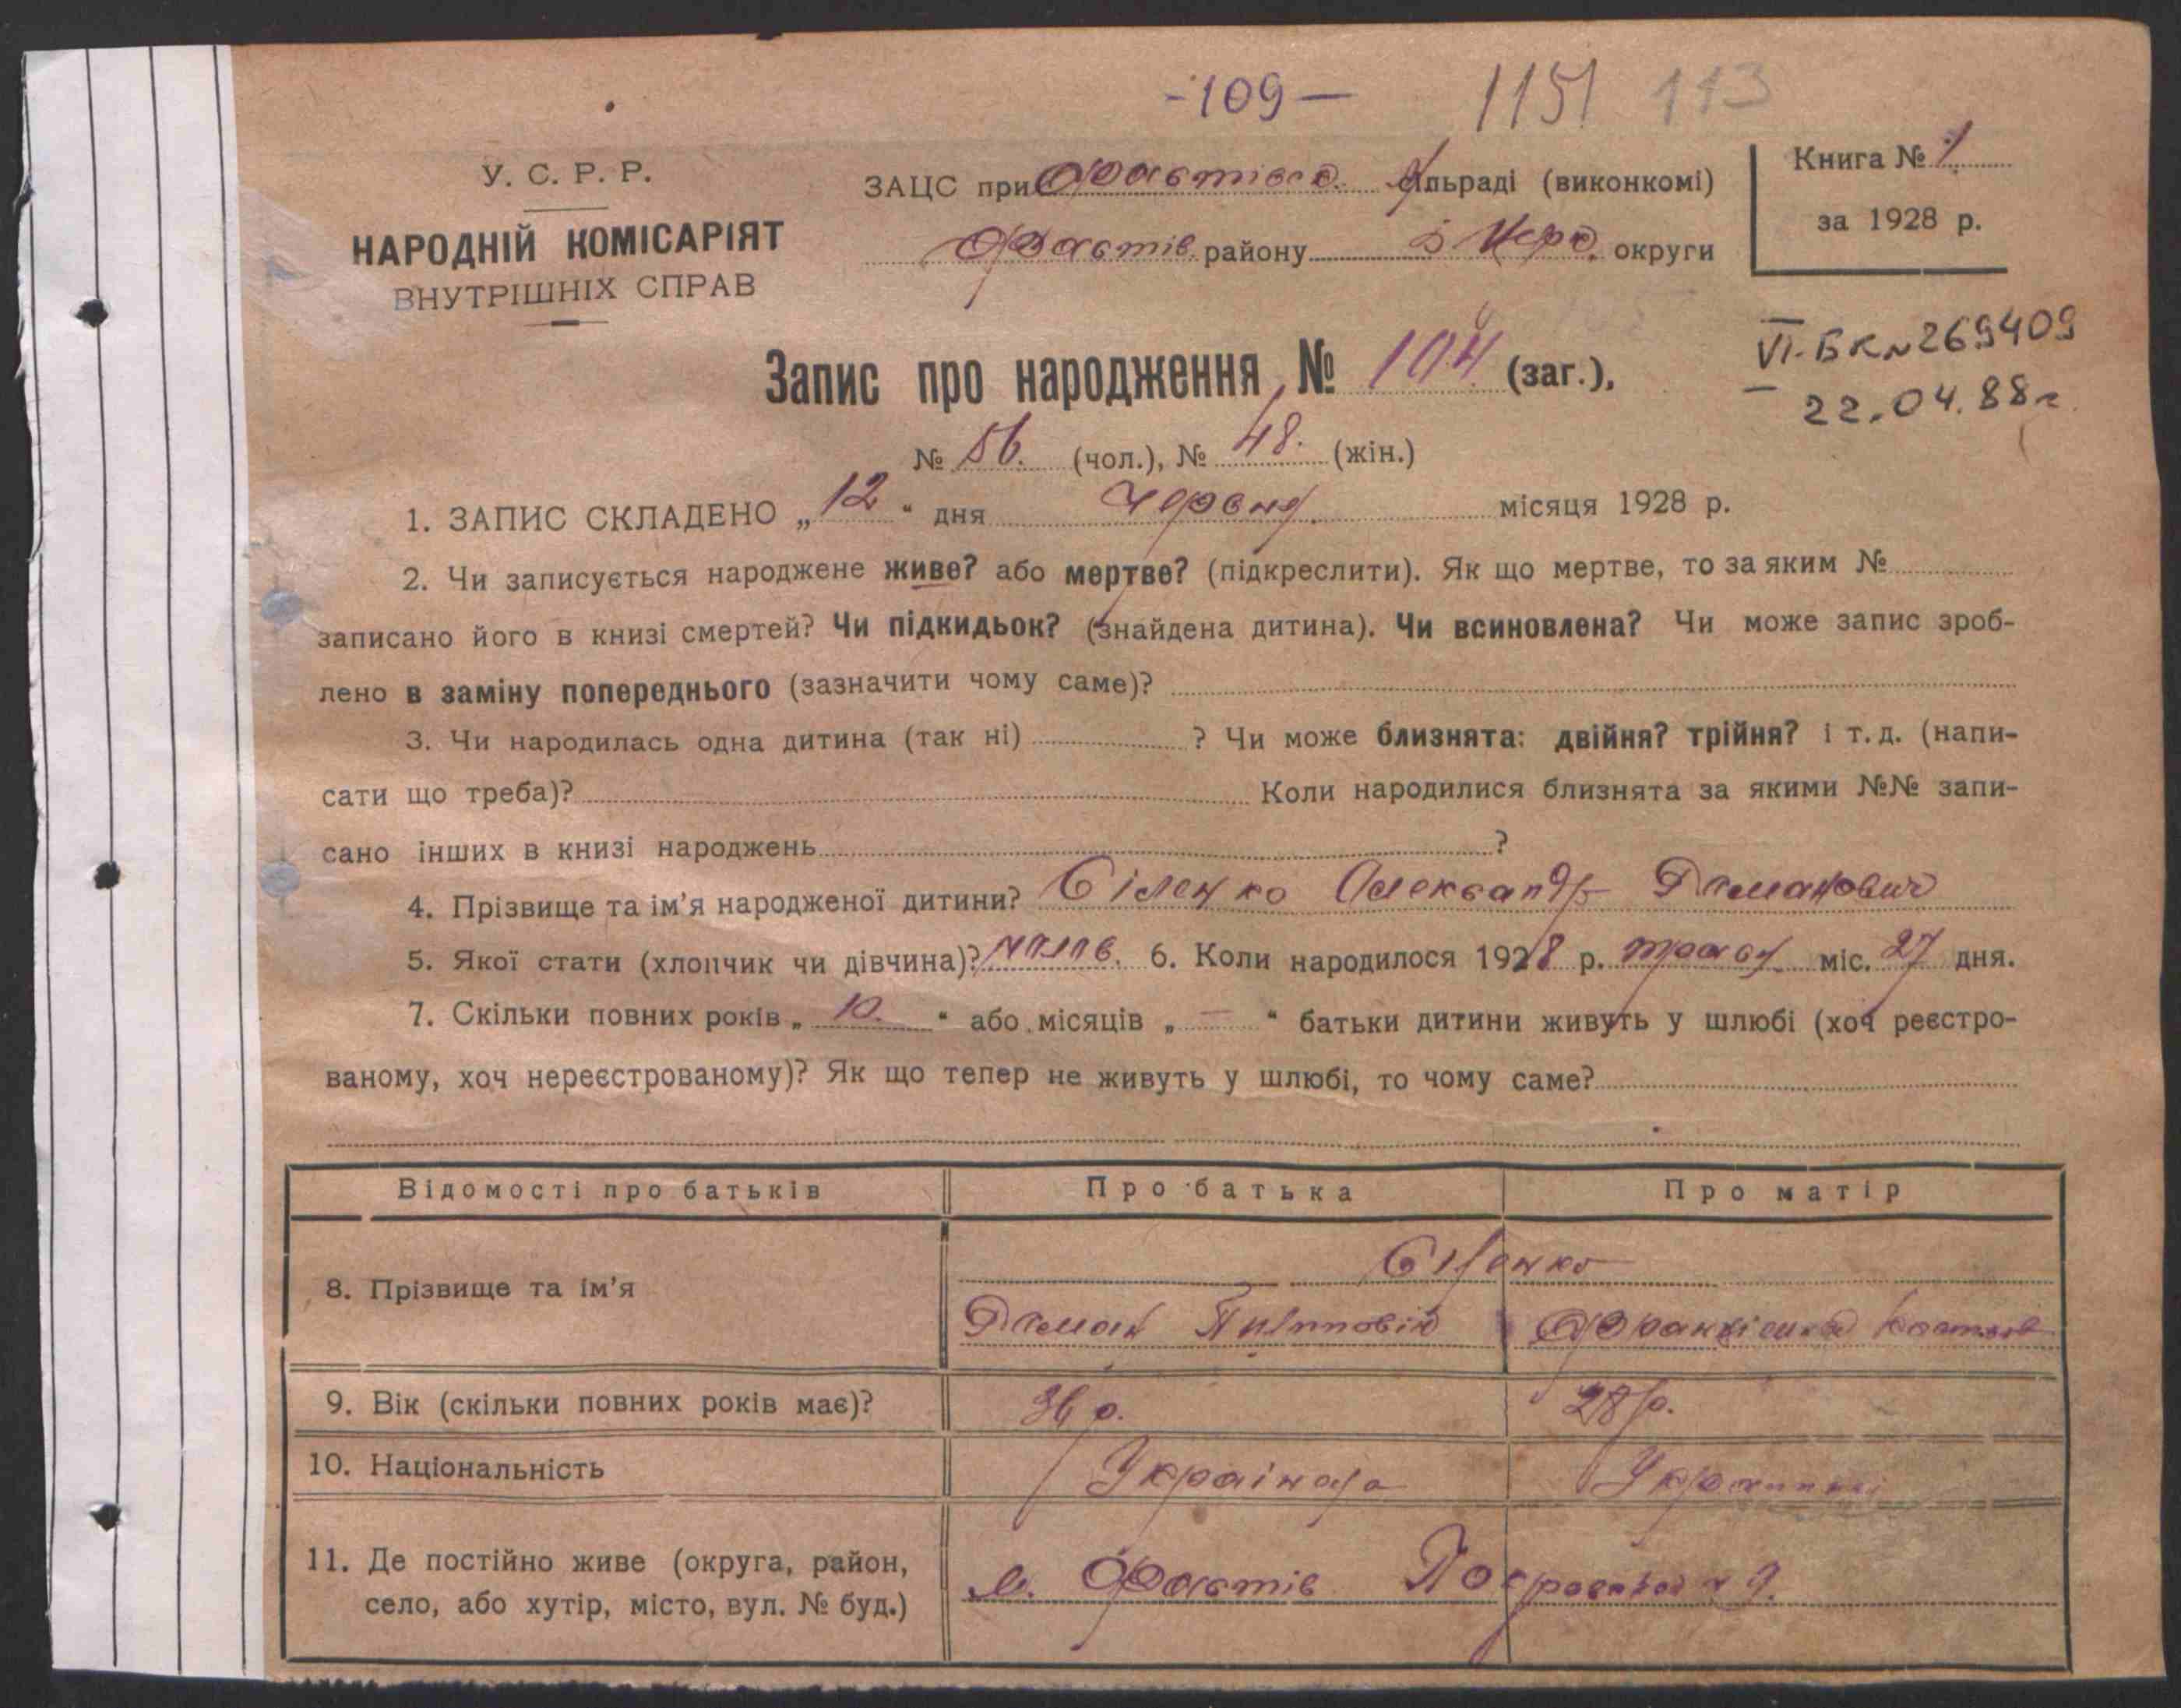 -109- 1151 113
У. С. Р. Р.
НАРОДНІЙ КОМІСАРІЯТ
ВНУТРІШНІХ СПРАВ
ЗАЦС при Фастівсо. сільраді (виконкомі)
Фастів. району Б Церк. округи
Книга № 1
за 1928 р.
Запис про народження, № 104 (заг.),
VI-БК № 269409
22.04.88г.
№ 56. (чол.), № 48. (жін.)
1. ЗАПИС СКЛАДЕНО „12“ дня Червня місяця 1928 р.
2. Чи записується народжене живе? або мертве? (підкреслити). Як що мертве, то за яким №
записано його в книзі смертей? Чи підкидьок? (знайдена дитина). Чи всиновлена? Чи може запис зроб-
лено в заміну попереднього (зазначити чому саме)?
3. Чи народилась одна дитина (так ні) ? Чи може близнята: двійня? трійня? і т. д. (напи-
сати що треба)? Коли народилися близнята за якими №№ запи-
сано інших в книзі народжень ?
4. Прізвище та ім’я народженої дитини? Біленко Олександр Даманович
5. Якої стати (хлопчик чи дівчина)? 6. Коли народилося 1928 р. травн. міс. 27 дня.
7. Скільки повних років „ 10. “ або місяців „ — “ батьки дитини живуть у шлюбі (хоч реєстро-
ваному, хоч нереєстрованому)? Як що тепер не живуть у шлюбі, то чому саме?
Відомості про батьків Про батька Про матір
8. Прізвище та ім’я Біленко
Даман Пилипович
9. Вік (скільки повних років має)? 36 р. 28 р.
10. Національність
11. Де постійно живе (округа, район,
село, або хутір, місто, вул. № буд.)
м. Фастів 9.